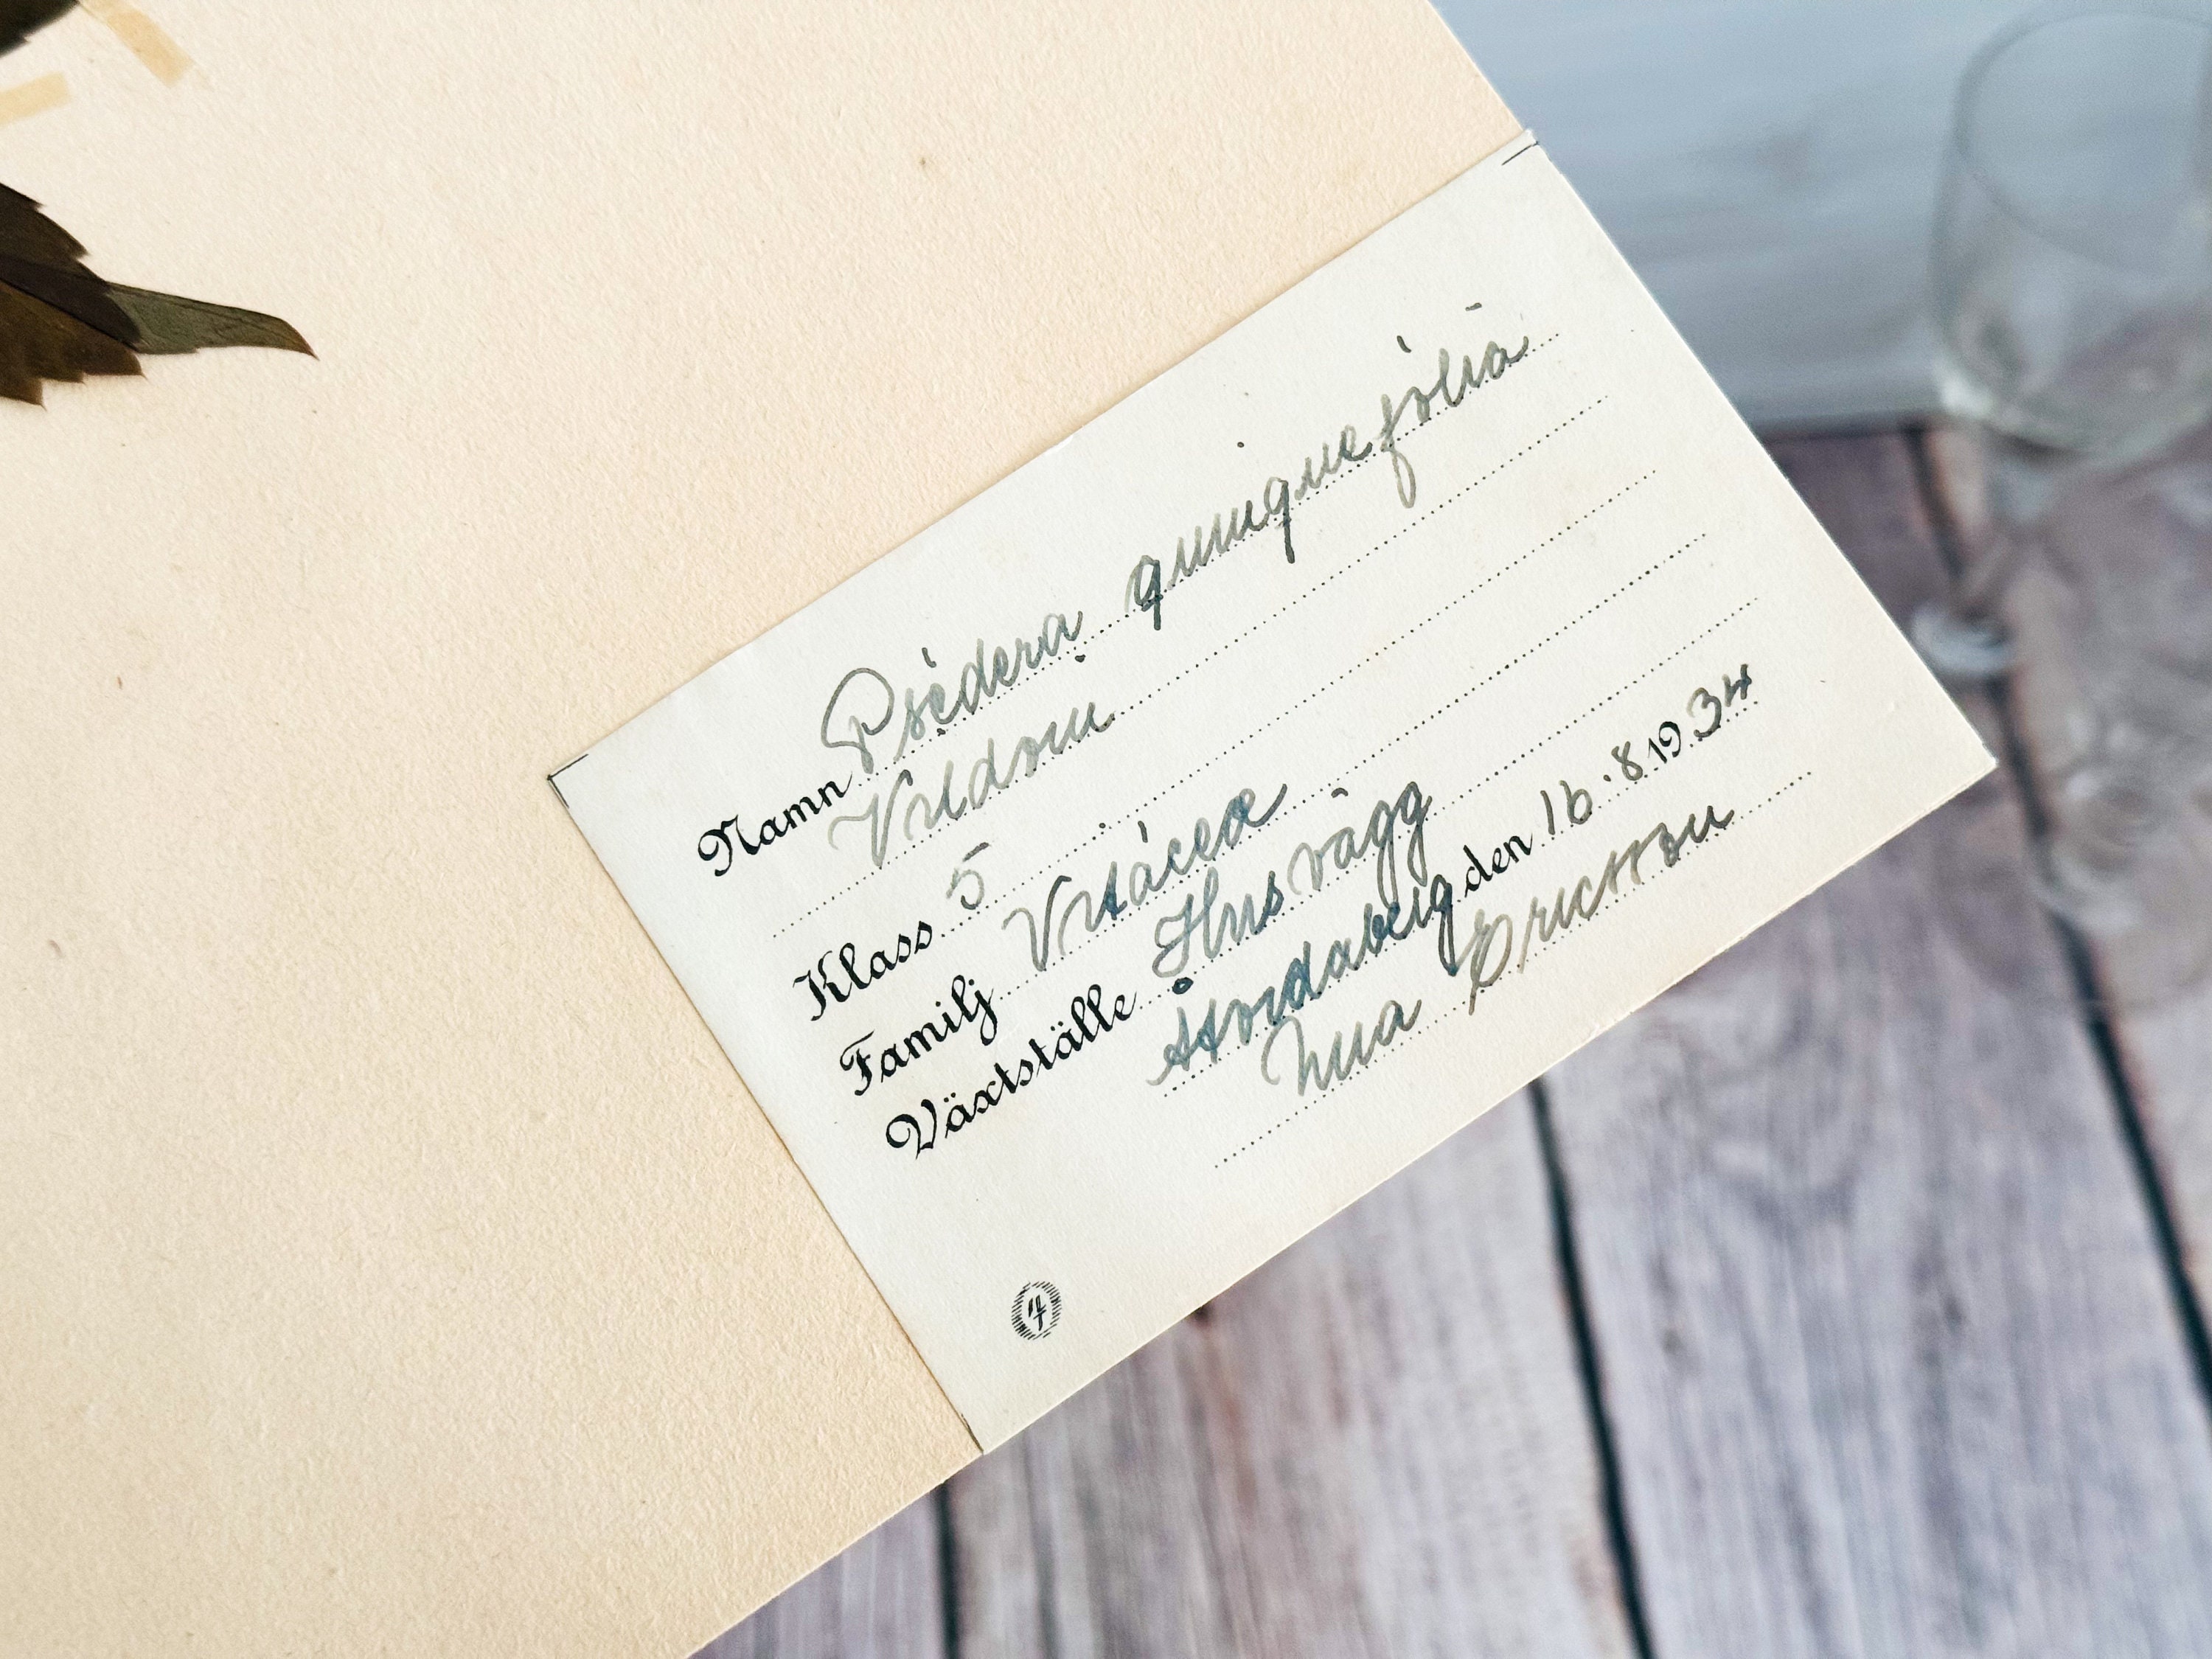 Namn Psédera quinquefólia
Vildvin
Klass 5
Familj Vitácea
Växtställe Husvägg
den 16.8.1934
Ericsson